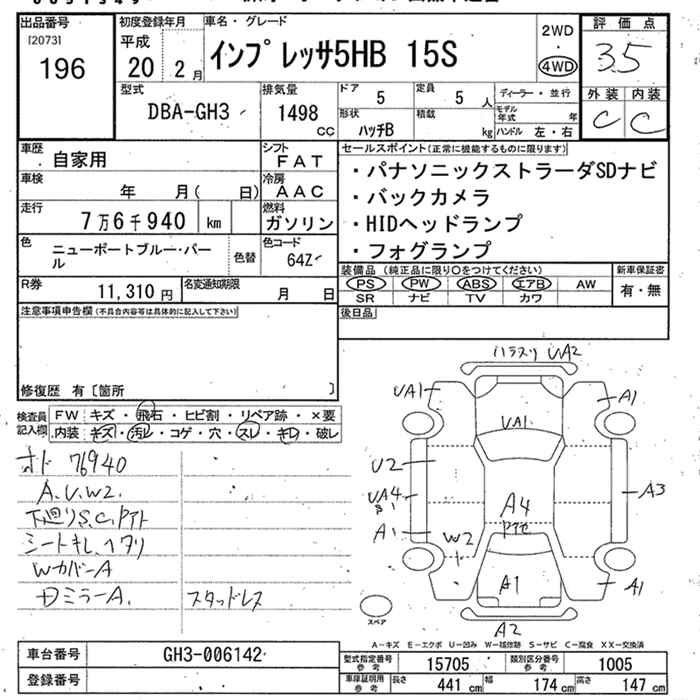 出品番号 初度登録年月 車名・グレード 評価点
[2073] 平成 インプレッサ5HB 15S 2WD
196 20 2月 4WD 3.5
型式 排気量 ドア 定員 ディーラー・並行 外装 内装
DBA-GH3 1498 CC 5 5人 モデル年式 年 C C
形状 積載
ハッチB kg ハンドル 左・右
車歴 自家用 シフト FAT セールスポイント(正常に機能するものに限ります)
・パナソニックストラーダSDナビ
車検 年 月( 日) 冷房 AAC ・バックカメラ
走行 7万6千940 km 燃料 ガソリン ・HIDヘッドランプ
・フォグランプ
色 ニューポートブルー・パール 色替 色コード 64Z
装備品(純正品に限り○をつけてください) 新車保証書
PS PW ABS エアB AW 有・無
SR ナビ TV カワ
R券 11,310円 名変通知期限 月 日
注意事項申告欄(不具合内容等は具体的に記入して下さい) 後日品
修復歴 有〔箇所 〕
検査員記入欄 FW キズ・飛石・ヒビ割・リペア跡・×要
内装 キズ・汚レ・コゲ・穴・スレ・キレ・破レ
オド 76940
A.U.W2.
下廻りS.C.Pアト
シートキレ、ヘタリ
WカバーA
DミラーA. スタッドレス
ハラスリ UA2
UA1 A1
UA1
U2
UA4 A3
A4
Pアセ
A1
W2
A1 A1
A2
スペア
A-キズ E-エクボ U-凹み W-補修跡 S-サビ C-腐食 XX-交換済
車台番号 GH3-006142 型式指定番号 参考 15705 類別区分番号 参考 1005
登録番号 車庫証明用 参考 長さ 441 cm 幅 174 cm 高さ 147 cm